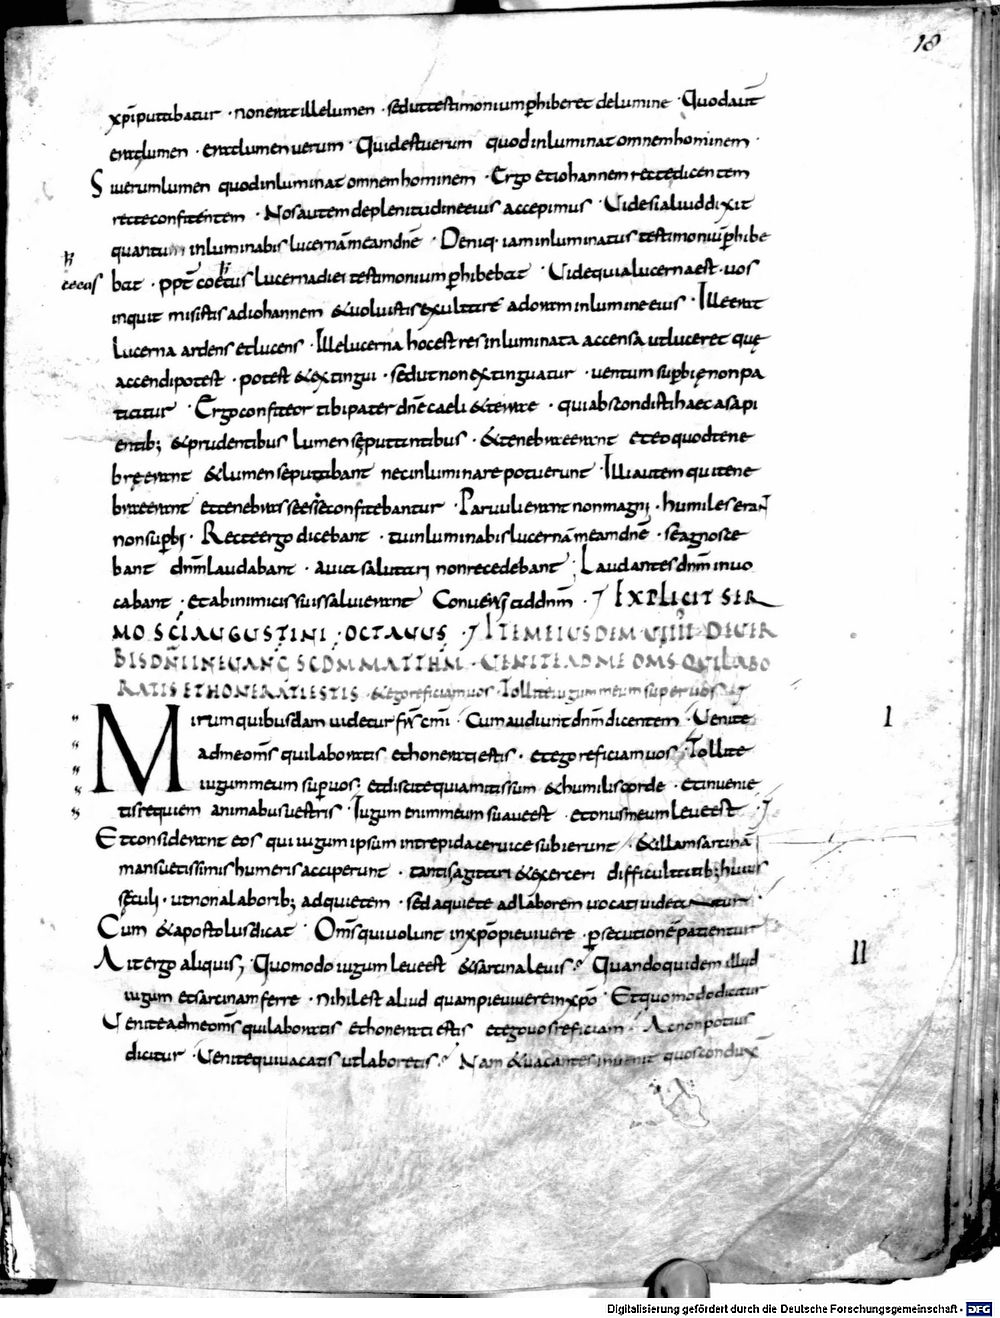 18
xp̄i putabatur · non erat ille lumen · sed ut testimonium phiberet de lumine · Quod aut̄
erat lumen · erat lumen uerum · Qui d est uerum quod inluminat omnem hominem ·
Si uerum lumen quod inluminat omnem hominem · Ergo et iohannem recte dicentem
recte confitentem · Nos autem de plenitudine eius accepimus · Uide si aliud dixit
quam tu inluminabis lucernā meam dn̄e · Deniq· iam inluminatus testimoniū phibe
bat · ppt̄ coetus lucerna diei testimonium phibebat · Uide quia lucerna est · uos
cecos
inquit misistis ad iohannem & uoluistis exultare ad oram in lumine eius · Ille erat
Lucerna ardens et lucens · Ille lucerna hoc est res inluminata accensa ut luceret quę
accendi potest · potest & extingui · sed ut non extinguatur · uentum supbię non pa
tiatur · Ergo confiteor tibi pater dn̄e caeli & terrae · qui abscondisti haec a sapi
entib; & prudentibus lumen sę putantibus · & tenebrae erant et eo quod tene
brę erant & lumen se putabant nec inluminare potuerunt · Illi autem qui tene
brae erant et tenebras se esse confitebantur · Paruuli erant non magni · humiles erant
non supbi · Recte ergo dicebant · tu inluminabis lucernā meam dn̄e · se agnosce
bant dn̄m laudabant · a uia salutari non recedebant ; Laudantes dn̄m inuo
cabant · et ab inimicis suis salui erant Conuersi ad dn̄m · EXPLICIT SER
MO SC̄I AUGUSTINI · OCTAUUS · ITEM EIUSDEM VIIII DE UER
BIS DN̄I IN EUANḠ SCDM MATTHM · UENITE AD ME OMS QUI LABO
RATIS ET HONERATI ESTIS · & ego reficiam uos · Tollite iugum meum super uos
Mirum quibusdam uidetur frs̄ cm̄i · Cum audiunt dn̄m dicentem · Uenite
ad me om̄s qui laboratis et honerati estis · et ego reficiam uos · Tollite
I
iugum meum sup uos ; et discite quia mitis sum & humilis corde · et inuenie
tis requiem animabus uestris · Iugum enim meum suaue est · et onus meum leue est ·
Et considerant eos qui iugum ipsum intrepida ceruice subierunt · & illam sarcinā
mansuetissimis humeris acciperunt · tantis agitari & exerceri difficultatib; huius
sęculi · ut non a laborib; ad quietem · sed a quiete ad laborem uocati uideantur ·
Cum & apostolus dicat · Om̄s qui uolunt in xp̄o pie uiuere · psecutionē patientur
Ait ergo aliquis ; Quomodo iugum leue est & sarcina leuis · Quando quidem illud
II
iugum et sarcinam ferre · nihil est aliud quam pie uiuere in xp̄o · Et quomodo dicitur
Uenite ad me om̄s qui laboratis et honerati estis et ego uos reficiam · Ac non potius
dicitur · Uenite qui uacatis ut laboretis · Nam & uacantes inuenit quos conduxe
Digitalisierung gefördert durch die Deutsche Forschungsgemeinschaft · DFG